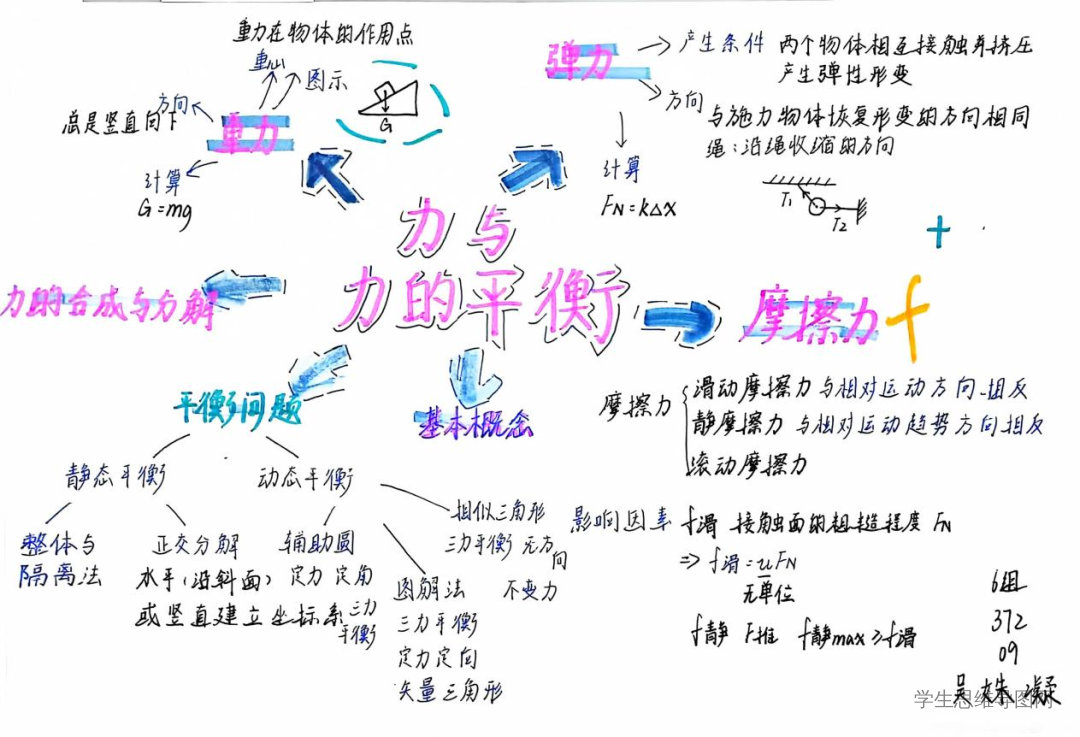 重力在物体的作用点
重心
图示
方向
总是竖直向下
重力
G
计算
G=mg
弹力
产生条件 两个物体相互接触并挤压
产生弹性形变
方向
与施力物体恢复形变的方向相同
绳:沿绳收缩的方向
计算
FN=kΔx
T1
T2
力与
力的平衡
力的合成与分解
摩擦力 f
摩擦力
滑动摩擦力 与相对运动方向相反
静摩擦力 与相对运动趋势方向相反
滚动摩擦力
影响因素 f滑 接触面的粗糙程度 FN
⇒ f滑=uFN
无单位
f静 F推 f静max≥f滑
基本概念
平衡问题
静态平衡
动态平衡
整体与
隔离法
正交分解
水平(沿斜面)
或竖直建立坐标系
辅助圆
定力 定角
三力
平衡
图解法
三力平衡
定力定向
矢量三角形
相似三角形
三力平衡 无方向
不变力
6组
372
09
学生思维导图网